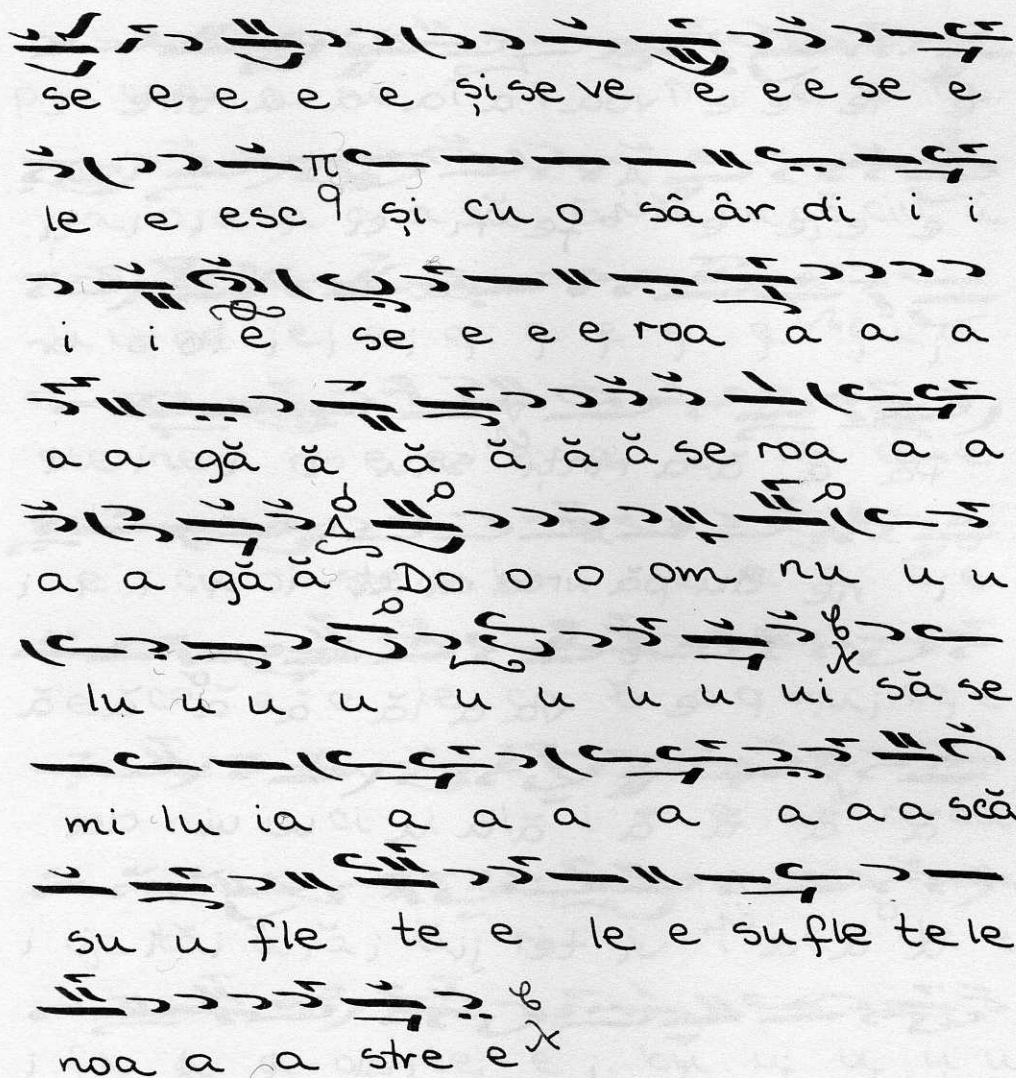 se e e e e e și se ve e e e se e
le e esc π q și cu o sâ âr di i i
i i e se e e e roa a a a
a a gă ă ă ă ă ă se roa a a
a a gă ă Δ Do o o om nu u u
lu u u u u u u u ui să se
mi lu ia a a a a a a a scă
su u fle te e le e su fle te le
noa a a stre e